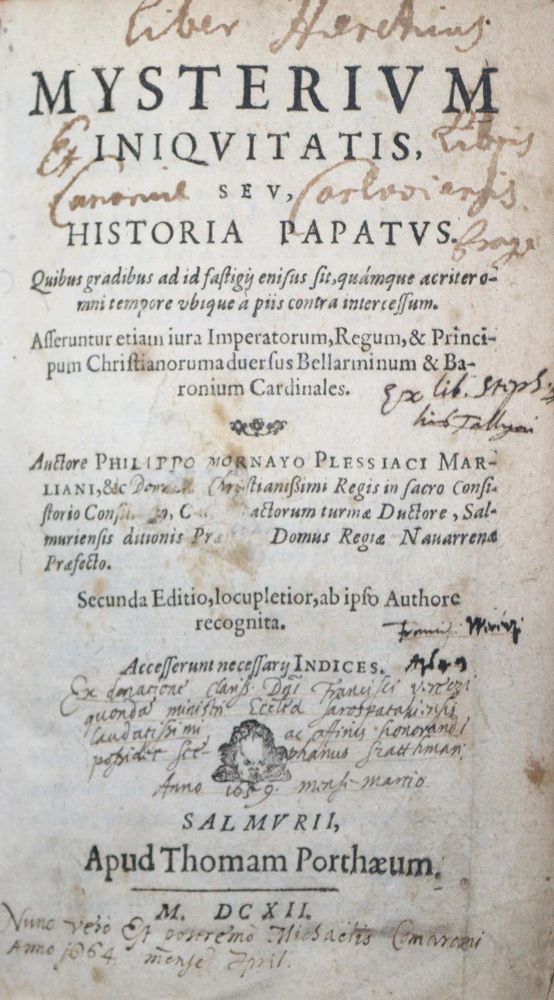 Liber
MYSTERIVM
Ex INIQVITATIS, Libris
Canoniae SEV,
HISTORIA PAPATVS.
Quibus gradibus ad id fastigij enisus sit, quámque acriter o-
mni tempore vbique à piis contra intercessum.
Asseruntur etiam iura Imperatorum, Regum, & Princi-
pum Christianorum aduersus Bellarminum & Ba-
ronium Cardinales.
Ex lib. Steph
Auctore PHILIPPO MORNAYO PLESSIACI MAR-
LIANI, &c Christianißimi Regis in sacro Consi-
storio actorum turmæ Ductore, Sal-
muriensis ditionis Domus Regiæ Nauarrenæ
Præfecto.
Secunda Editio, locupletior, ab ipso Authore
recognita.
Accesserunt necessarij INDICES.
Ex donatione Clariss: Dni Francisci
quondã ministri Eccles
laudatissimi ac affinis honorandi
possidet Ste- phanus
Anno 1659. mense Martio
SALMVRII,
Apud Thomam Porthæum.
M. DCXII.
Nunc vero Et postremo Michaëlis Comaromi
Anno 1664 mense April.